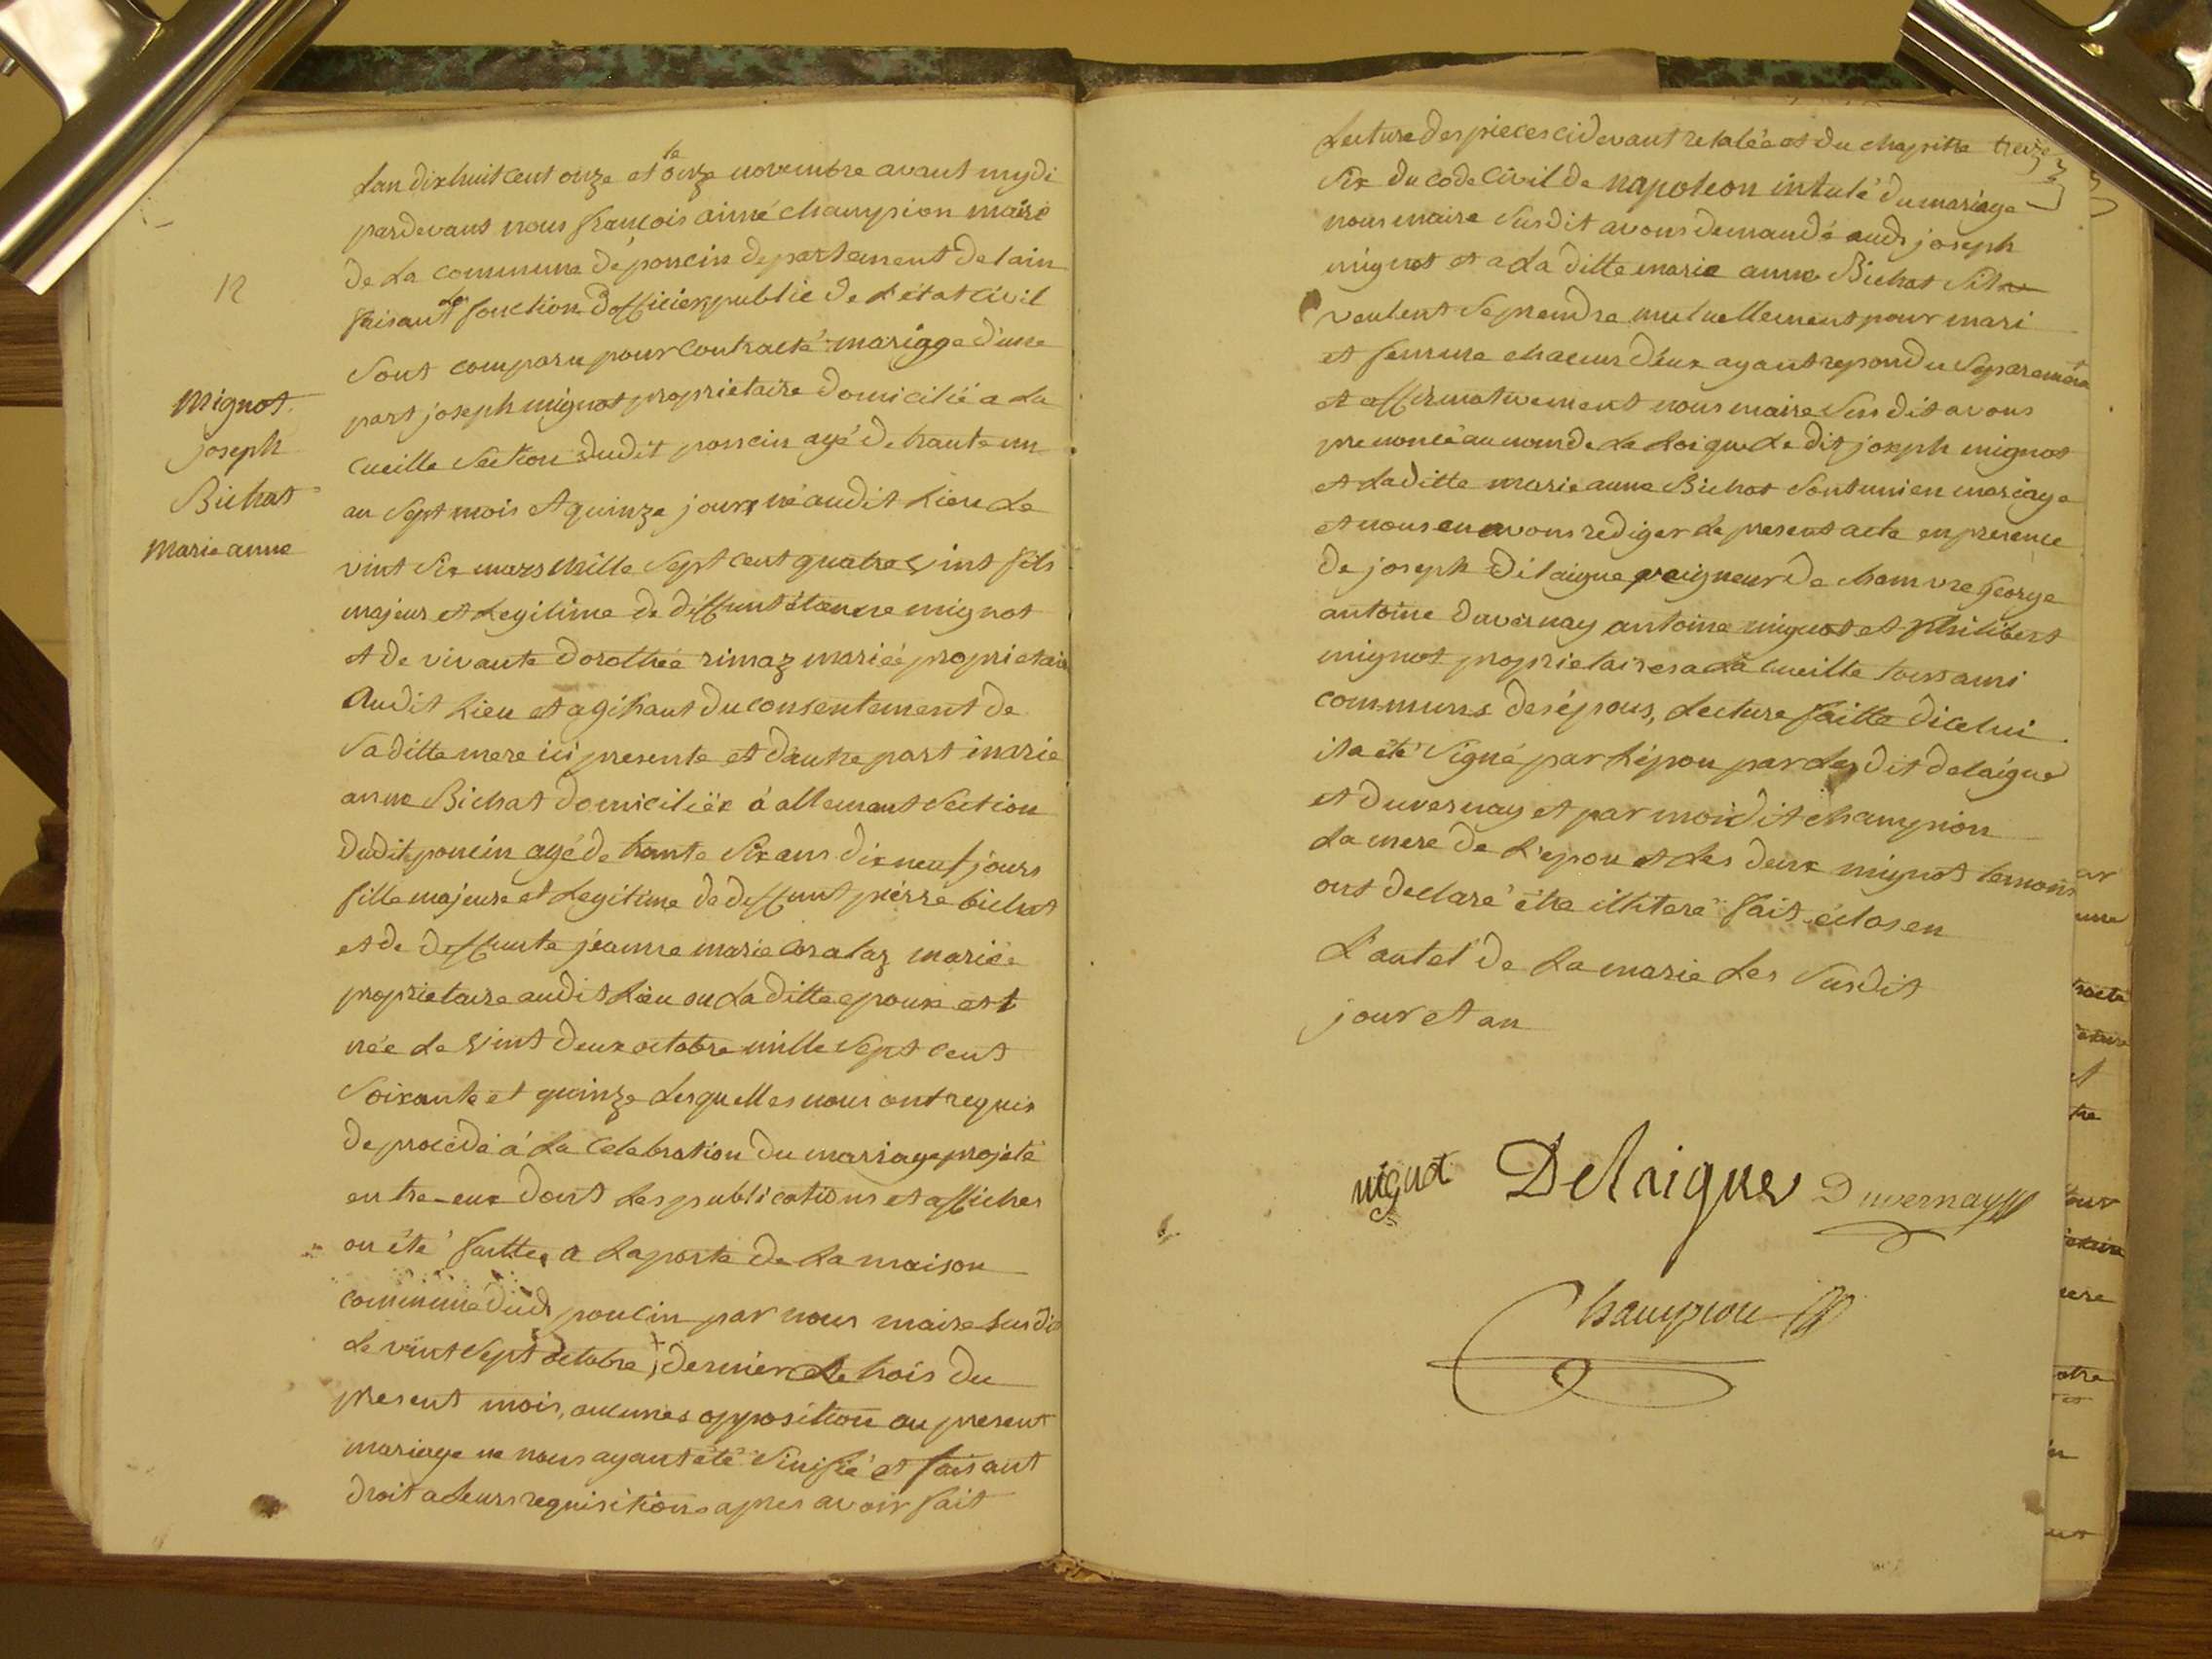 12
Mignot
joseph
Bichat
marie anne
Lan dix huit cent onze et le onze novembre avant mydi
pardevant nous françois aimé champion maire
de La commune de poncin departement de lain
faisant Les fonction dofficier public de L'état Civil
Sont comparu pour contracté mariage d'une
part joseph mignot proprietaire domicilié a La
cueille Section dudit poncin agé de trante un
an Sept mois et quinze jours né audit Lieu Le
vint Six mars Mille Sept cent quatre vint fils
majeur et Legitime de deffunt étienne mignot
et de vivante dorothée rimaz mariée proprietair
Audit Lieu et agissant du consentement de
Saditte mere ici presente et dautre part marie
anne Bichat domiciliée à allement Section
dudit poncin agé de trante Six ans dix neuf jours
fille majeure et Legitime de deffunt piérre bichat
et de deffunte jeanne marie Coralaz mariée
proprietaire audit Lieu ou La ditte epouse est
née Le vint deux octobre mille Sept Cent
Soixante et quinze Lesquelles nous ont requis
de procédé à La Celebration du mariage projeté
entre-eux dont Les publications et affiches
on été faittes a La porte de La maison
commune dudt poncin par nous maire Susdit
Le vint Sept octobre dernier Le trois du
present mois, aucunes opposition au present
mariage ne nous ayant été Sinifié et faisant
droit a Leurs requisitions apres avoir fait
Lecture des pieces ci devant relaléé et du chapitre
Six du code Civil de napoleon intulé du mariage
nous maire Susdit avons demandé audt joseph
mignot et a La ditte marie anne Bichat Sil
veulent Se prendre mutuellement pour mari
et femme chacun d'eux ayant repondu Séparement
et affirmativement nous maire Susdit avons
prenoncé au nom de La Loi que Le dit joseph mignot
et Laditte marie anne Bichat Sont uni en mariage
et nous en avons rediger Le present acte en presence
de joseph dilaigue de george
antoine duvernay antoine mignot et philibert
mignot proprietaires a La cueille tous ami
communs des époux, Lecture faitte dicelui
il a été Signé par Lépou par Les dit delaigue
et duvernay et par moi dit champion
La mere de L'epou et Les deux mignot temoins
ont declaré étre illiteré fait éclos en
L'autel de La marie Les Susdit
jour et an
mignot Delaigue Duvernay
Champion